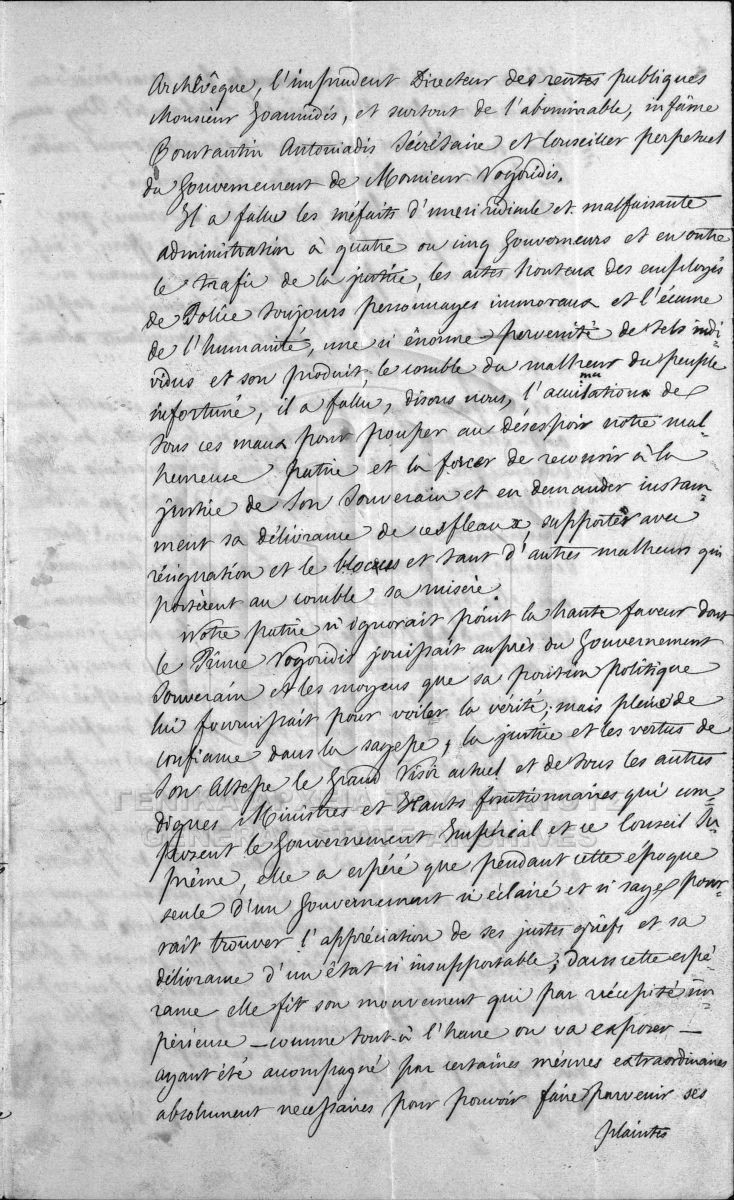 Archêvêque, l'imprudent Directeur des rentes publiques
Monsieur Joannidis, et surtout de l'abominable, infâme
Constantin Antoniadis Sécrétaire et Conseiller perpetuel
du Gouvernement de Monsieur Vogoridis.
Il a fallu les méfaits d'une si ridicule et malfaisante
administration à quatre ou cinq Gouverneurs et en outre
le trafic de la justice, les actes honteux des employés
de Police toujours personnages immoraux et l'écume
de l'humanité, une si énorme perversité de tels indi-
vidus et son produit, le comble du malheur du peuple
infortuné, il a fallu, disons nous, l'accumulation de
tous ces maux pour pousser au désespoir notre mal-
heureuse patrie et la forcer de recourir à la
justice de Son Souverain et en demander instam-
ment sa délivrance de ces fleaux, supportés avec
résignation et le blocus et tant d'autres malheurs qui
portèrent au comble sa misère.
Notre patrie n'ignorait point la haute faveur dont
le Prince Vogoridis jouissait auprès du Gouvernement
Souverain et les moyens que sa position politique
lui fournissait pour voiler la vérité; mais pleine de
confiance dans la sagesse, la justice et les vertus de
Son Altesse le Grand Visir actuel et de tous les autres
dignes Ministres et Hauts fonctionnaires qui com-
posent le Gouvernement Impérial et ce Conseil Su-
prême, elle a espéré que pendant cette époque
seule d'un Gouvernement si éclairé et si sage, pour-
rait trouver l'appréciation de ses justes griefs et sa
délivrance d'un état si insupportable; dans cette espé-
rance elle fit son mouvement qui par nécessité im-
périeuse — comme tout-à l'heure on va exposer —
ayant été accompagné par certaines mésures extraordinaires
absolument necessaires pour pouvoir faire parvenir ses
plaintes